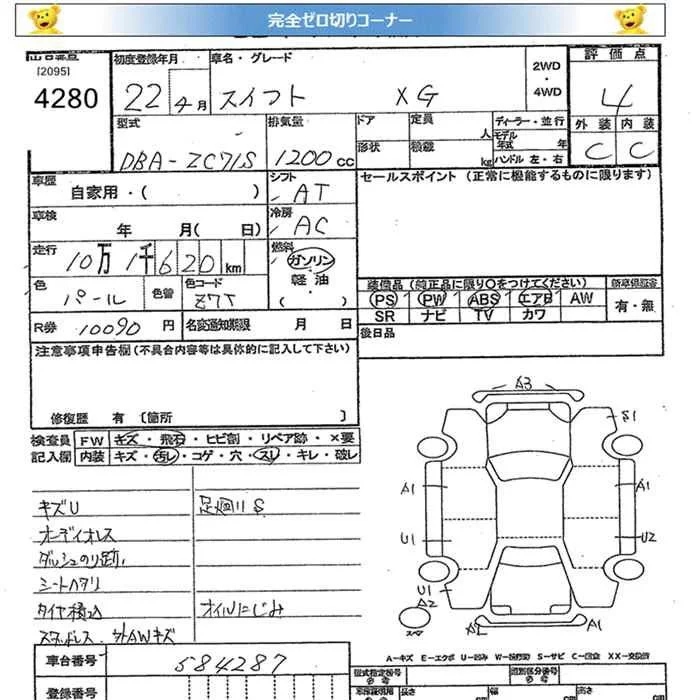 完全ゼロ切りコーナー
[2095]
4280
初度登録年月
22 年月
車名・グレード
スイフト XG
2WD
・
4WD
評価点
4
外装 内装
C C
型式
DBA-ZC71S
排気量
1200 cc
ドア
形状
定員 人
積載 kg
ディーラー・並行
モデル年式 年
ハンドル 左・右
車歴
自家用・( )
シフト
AT
セールスポイント (正常に機能するものに限ります)
車検
年 月( 日)
冷房
AC
走行
10万1千620 km
燃料
ガソリン
軽油
( )
色
パール
色替
色コード
Z7T
装備品 (純正品に限り○をつけてください)
PS PW ABS エアB AW
SR ナビ TV カワ
新車保証書
有・無
R券 10090 円
名変通知期限 月 日
後日品
注意事項申告欄 (不具合内容等は具体的に記入して下さい)
修復歴 有 [箇所 ]
検査員
記入欄
FW キズ・飛石・ヒビ割・リペア跡・×要
内装 キズ・汚レ・コゲ・穴・スレ・キレ・破レ
キズU
オーディオレス
ダッシュのり跡
シートヘタリ
タイヤ積込
外AWキズ
足廻りS
オイルにじみ
A3
S1
A1
A1
U1
U2
U1
A2
A2
A1
スペア
A-キズ E-エクボ U-凹み W-補修跡 S-サビ C-腐食 XX-交換済
車台番号
584287
登録番号
型式指定番号
類別区分番号
長さ
幅
高さ